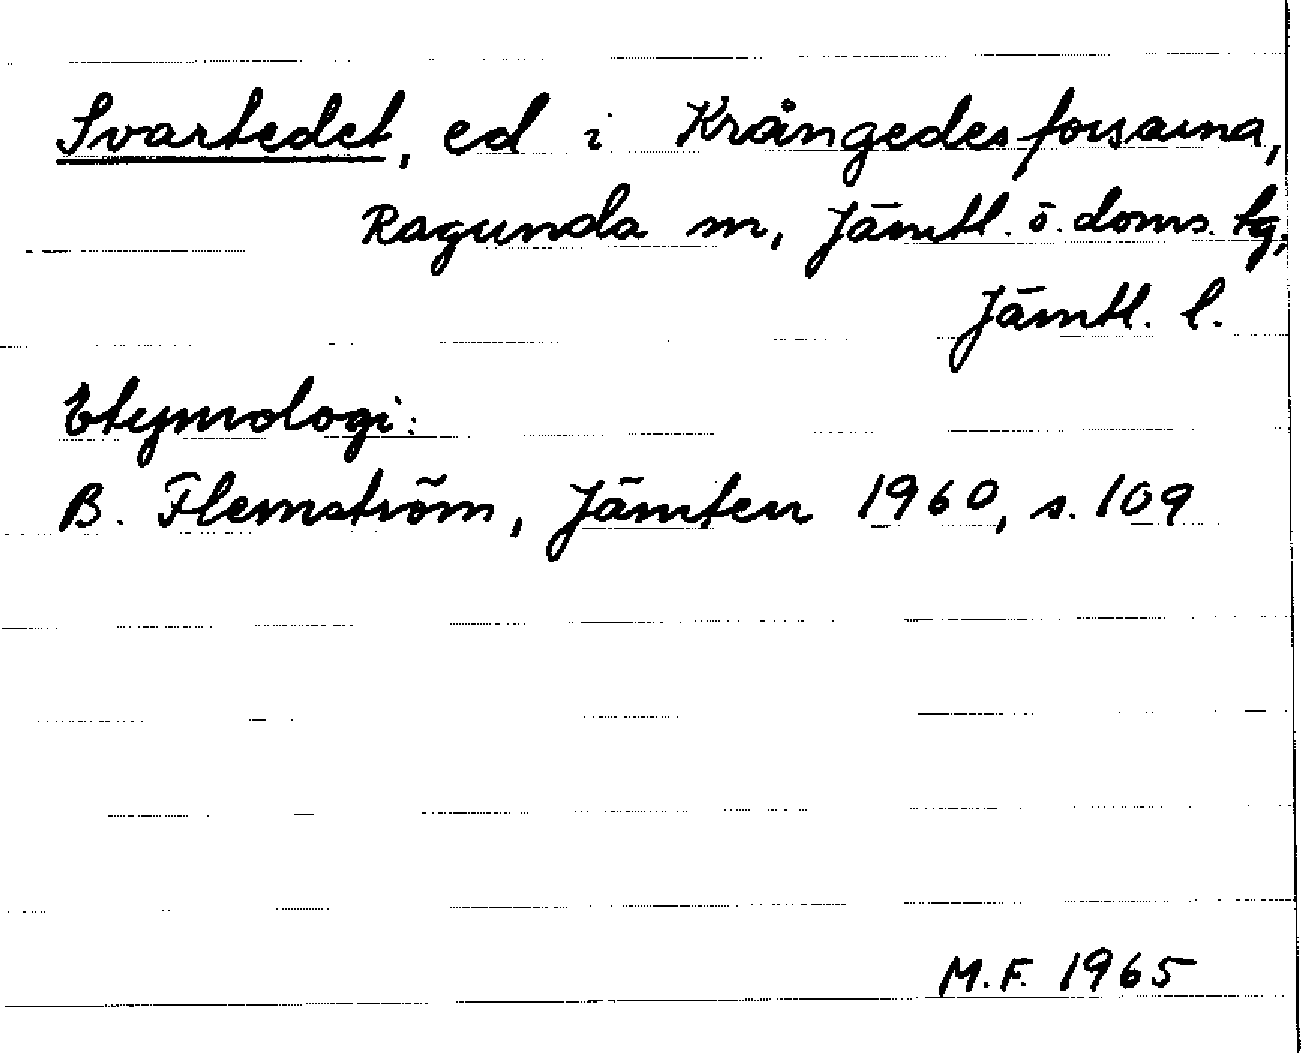 Svartedet, ed i Krångedesforsarna,
Ragunda sn, Jämtl. ö. doms. tg,
Jämtl. l.
Etymologi:
B. Flemström, Jämten 1960, s. 109
M.F. 1965